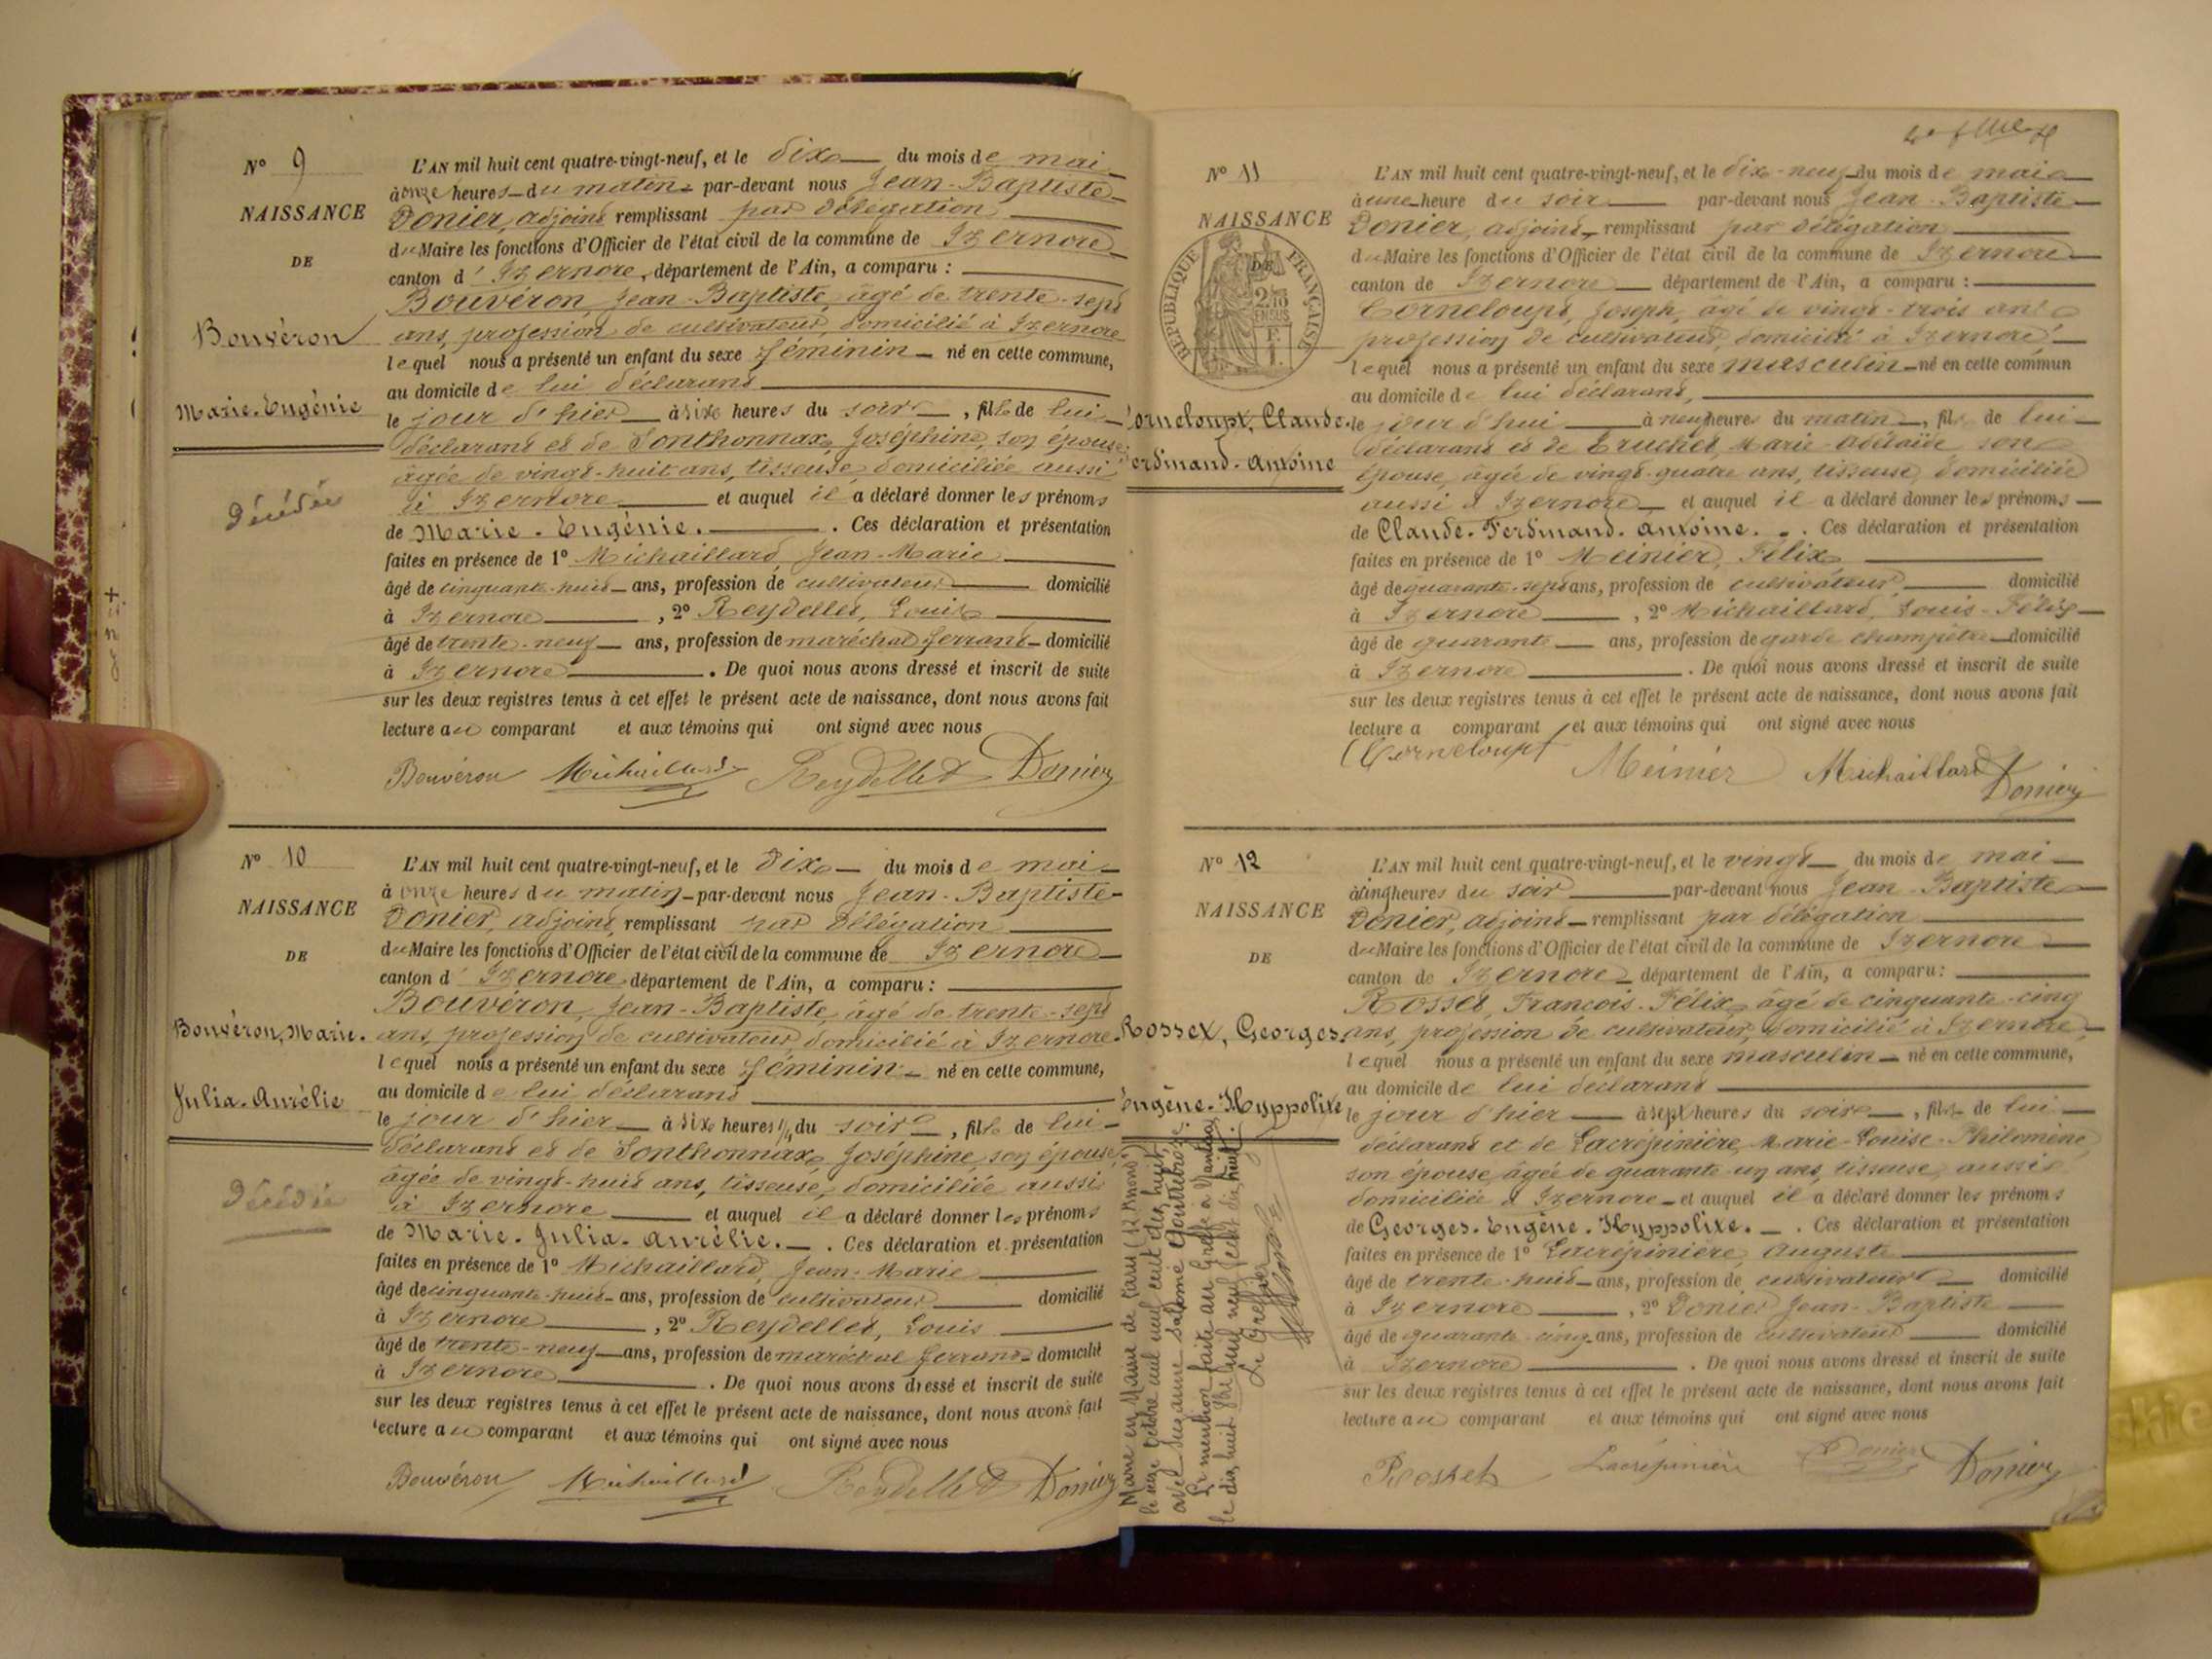 N° 9
NAISSANCE
DE
Bouvéron
Marie-Eugénie
Décédée
L'AN mil huit cent quatre-vingt-neuf, et le dix du mois de mai
à onze heures du matin par-devant nous Jean-Baptiste
Donier, adjoint remplissant par délégation
du Maire les fonctions d'Officier de l'état civil de la commune de Izernore
canton d'Izernore, département de l'Ain, a comparu :
Bouvéron, Jean-Baptiste, âgé de trente-sept
ans, profession de cultivateur, domicilié à Izernore
lequel nous a présenté un enfant du sexe féminin né en cette commune,
au domicile de lui déclarant
le jour d'hier à six heures du soir, fille de lui
déclarant et de Sonthonnax, Joséphine, son épouse,
âgée de vingt-huit ans, tisseuse, domiciliée aussi
à Izernore et auquel il a déclaré donner les prénoms
de Marie-Eugénie. . Ces déclaration et présentation
faites en présence de 1° Michaillard, Jean-Marie
âgé de cinquante-huit ans, profession de cultivateur domicilié
à Izernore, 2° Reydellet, Louis
âgé de trente-neuf ans, profession de maréchal ferrant domicilié
à Izernore. De quoi nous avons dressé et inscrit de suite
sur les deux registres tenus à cet effet le présent acte de naissance, dont nous avons fait
lecture au comparant et aux témoins qui ont signé avec nous
Bouvéron Michaillard Reydellet Donier
N° 10
NAISSANCE
DE
Bouvéron, Marie-
Julia-Aurélie
Décédée
L'AN mil huit cent quatre-vingt-neuf, et le dix du mois de mai
à onze heures du matin par-devant nous Jean-Baptiste
Donier, adjoint, remplissant par délégation
du Maire les fonctions d'Officier de l'état civil de la commune de Izernore
canton d'Izernore, département de l'Ain, a comparu :
Bouvéron, Jean-Baptiste, âgé de trente-sept
ans, profession de cultivateur, domicilié à Izernore
lequel nous a présenté un enfant du sexe féminin né en cette commune,
au domicile de lui déclarant
le jour d'hier à six heures ½ du soir, fille de lui
déclarant et de Sonthonnax, Joséphine, son épouse,
âgée de vingt-huit ans, tisseuse, domiciliée aussi
à Izernore et auquel il a déclaré donner les prénoms
de Marie-Julia-Aurélie. . Ces déclaration et présentation
faites en présence de 1° Michaillard, Jean-Marie
âgé de cinquante-huit ans, profession de cultivateur domicilié
à Izernore, 2° Reydellet, Louis
âgé de trente-neuf ans, profession de maréchal ferrant domicilié
à Izernore. De quoi nous avons dressé et inscrit de suite
sur les deux registres tenus à cet effet le présent acte de naissance, dont nous avons fait
lecture au comparant et aux témoins qui ont signé avec nous
Bouvéron Michaillard Reydellet Donier
N° 11
NAISSANCE
DE
RÉPUBLIQUE FRANÇAISE
2/10 EN SUS
Corneloupt, Claude-
Ferdinand-Antoine
L'AN mil huit cent quatre-vingt-neuf, et le dix-neuf du mois de mai
à une heure du soir par-devant nous Jean-Baptiste
Donier, adjoint, remplissant par délégation
du Maire les fonctions d'Officier de l'état civil de la commune de Izernore
canton de Izernore département de l'Ain, a comparu :
Corneloupt, Joseph, âgé de vingt-trois ans
profession de cultivateur, domicilié à Izernore
lequel nous a présenté un enfant du sexe masculin né en cette commun
au domicile de lui déclarant,
le jour d'hui à neuf heures du matin, fils de lui
déclarant et de Truchet, Marie-Adélaïde son
épouse, âgée de vingt-quatre ans, tisseuse, domiciliée
aussi à Izernore et auquel il a déclaré donner les prénoms
de Claude-Ferdinand-Antoine. . Ces déclaration et présentation
faites en présence de 1° Meinier, Félix
âgé de quarante-sept ans, profession de cultivateur, domicilié
à Izernore, 2° Michaillard, Louis-Félix
âgé de quarante ans, profession de garde champêtre domicilié
à Izernore. De quoi nous avons dressé et inscrit de suite
sur les deux registres tenus à cet effet le présent acte de naissance, dont nous avons fait
lecture a comparant et aux témoins qui ont signé avec nous
Corneloupt Meinier Michaillard Donier
N° 12
NAISSANCE
DE
Rosset, Georges-
Eugène-Hyppolite
Marié en Mairie de Paris (12e Arrond.)
le seize octobre mil neuf cent dix huit
avec Suzanne Salomé
La mention faite au Greffe à Nantua
le dix huit mil neuf cent dix huit.
Le Greffier
L'AN mil huit cent quatre-vingt-neuf, et le vingt du mois de mai
à cinq heures du soir par-devant nous Jean-Baptiste
Donier, adjoint remplissant par délégation
du Maire les fonctions d'Officier de l'état civil de la commune de Izernore
canton de Izernore département de l'Ain, a comparu :
Rosset, François-Félix, âgé de cinquante-cinq
ans, profession de cultivateur, domicilié à Izernore,
lequel nous a présenté un enfant du sexe masculin né en cette commune,
au domicile de lui déclarant
le jour d'hier à sept heures du soir, fils de lui
déclarant et de Lacrépinière, Marie-Louise-Philomène,
son épouse, âgée de quarante-un ans, tisseuse, aussi
domiciliée à Izernore et auquel il a déclaré donner les prénoms
de Georges-Eugène-Hyppolite. . Ces déclaration et présentation
faites en présence de 1° Lacrépinière, Auguste
âgé de trente-huit ans, profession de cultivateur domicilié
à Izernore, 2° Donier Jean-Baptiste
âgé de quarante-cinq ans, profession de cultivateur domicilié
à Izernore. De quoi nous avons dressé et inscrit de suite
sur les deux registres tenus à cet effet le présent acte de naissance, dont nous avons fait
lecture au comparant et aux témoins qui ont signé avec nous
Rosset Lacrépinière Donier Donier